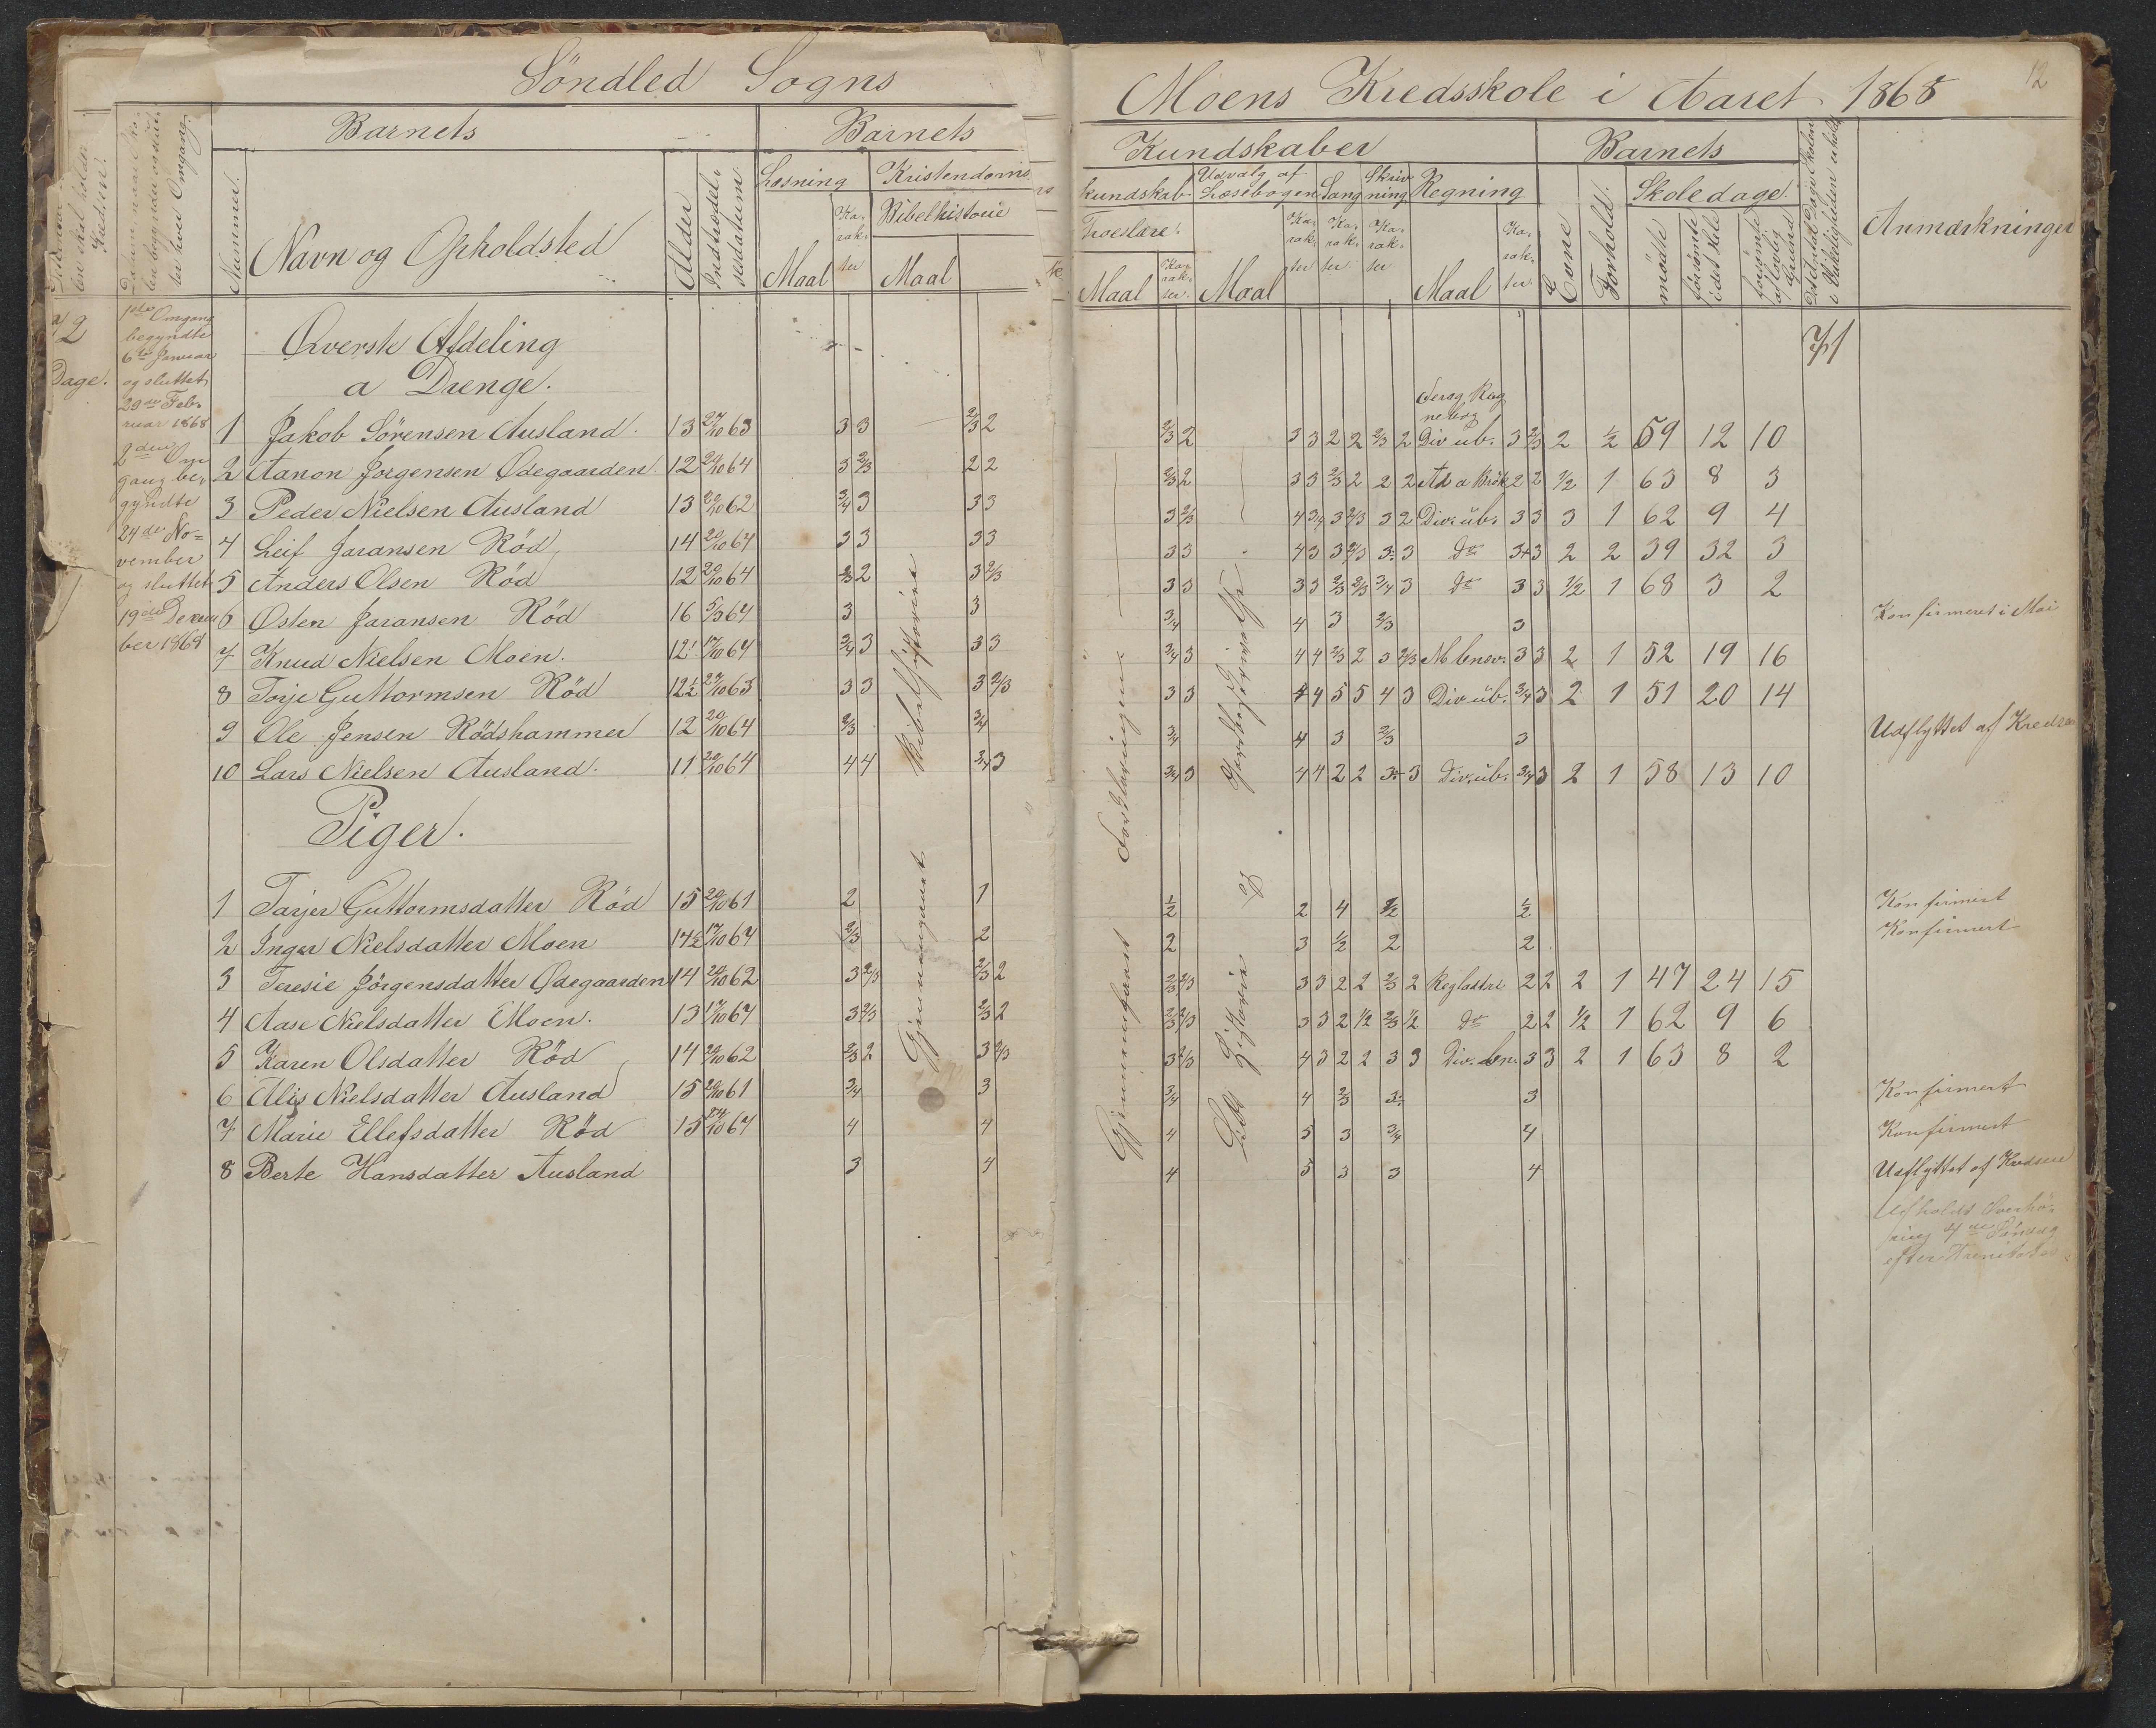 Söndled Sogns
Barnets
Barnets
Nummer.
Navn og Opholdsted
Alder
Indtrædelsesdatum
Læsning
Kristendoms
Maal
Ka-
rak-
ter
Bibelhistorie
Maal
2
Dage.
1ste Omgang
begyndte
6te Januar
og sluttet
29de Feb-
ruar 1868
2den Om
gang be-
gyndte
24de No=
vember
og sluttet
19de Decem
ber 1868
Øverste Afdeling
a Drenge.
1 Jakob Sörensen Ausland. 13 27/10 63 3 3 2/3 2
2 Aanon Jorgensen Ødegaarden. 12 20/10 64 3 2/3 2 2
3 Peder Nielsen Ausland 13 20/10 62 3/4 3 3 3
4 Leif Jaransen Röd 14 20/10 64 3 3 3 3
5 Anders Olsen Röd 12 20/10 64 2/3 2 3 2/3
6 Østen Jaransen Röd 16 5/3 64 3 3
7 Knud Nielsen Moen. 12 17/10 64 3/4 3 3 3
8 Torje Guttormsen Röd 12½ 27/10 63 3 3 3 2/3
9 Ole Jensen Rödshammer 12 20/10 64 2/3 3/4
10 Lars Nielsen Ausland. 11 20/10 64 4 4 3/4 3
Piger.
1 Tarjer Guttormsdatter Röd 15 20/10 61 2 1
2 Inger Nielsdatter Moen 14½ 17/10 64 2/3 2
3 Teresie Jörgensdatter Ødegaarden 14 20/10 62 3 2/3 2/3 2
4 Aase Nielsdatter Moen. 13 17/10 64 3 2/3 2/3 2
5 Karen Olsdatter Röd 14 20/10 62 2/3 2 3 2/3
6 Alis Nielsdatter Ausland 15 20/10 61 3/4 3
7 Marie Ellefsdatter Röd 15 27/10 64 4 4
8 Berte Hansdatter Ausland 3 4
Gjennemgaaet Bibelhistorien
12
Moens Kredsskole i Aaret 1868
Kundskaber
Barnets
kundskab.
Udvalg af
Læsebogen
Sang
Skriv
ning
Regning
Skoledage.
Troeslære.
Maal
Ka-
rak-
ter.
Maal
Ka-
rak-
ter
Ka-
rak-
ter
Ka-
rak-
ter
Maal
Ka-
rak-
ter.
Evne
Forhold.
mödte
forsömte
i det Hele
forsömte
af lovlig
Grund
Anmærkninger
71
2/3 2 3 3 2 2 2/3 2 Div üb. 3 2/3 2 ½ 59 12 10
2/3 2 3 3 2/3 2 2 2 Ad a Brök 2 2 ½ 1 63 8 3
3 2/3 4 3/4 3 2/3 3 2 Div. üb. 3 3 3 1 62 9 4
3 3 4 3 3 2/3 3 3 do 3 3 2 2 39 32 3
3 3 3 3 2/3 2/3 3/4 3 do 3 3 ½ 1 68 3 2
3/4 4 3 2/3 3 Konfirmeret i Mai
3/4 3 4 4 2/3 2 3 2/3 M benev. 3 3 2 1 52 19 16
3 3 4 4 5 5 4 3 Div üb. 3/4 3 2 1 51 20 14
3/4 4 3 2/3 3 Udflyttet af Kredsen
3/4 3 4 4 2 2 3 3 Div. üb. 3/4 3 2 1 58 13 10
½ 2 4 ½ ½ Konfirmert
2 3 ½ 2 2 Konfirmert
2/3 2/3 3 3 2 2 2/3 2 Regladtri 2 2 2 1 47 24 15
2/3 2/3 3 3 2 ½ 2/3 ½ do 2 2 ½ 1 62 9 6
3 2/3 4 3 2 2 3 3 Div. ben. 3 3 2 1 63 8 2
3/4 4 2/3 3 3 Konfirmert
4 5 3 3/4 4 Konfirmert
4 5 3 3 4 Udflyttet af Kredsen
4de Söndag
Gjennemgaaet